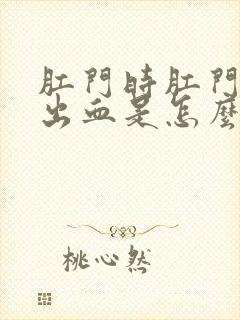 肛門時肛門
出血是怎麼
桃心然